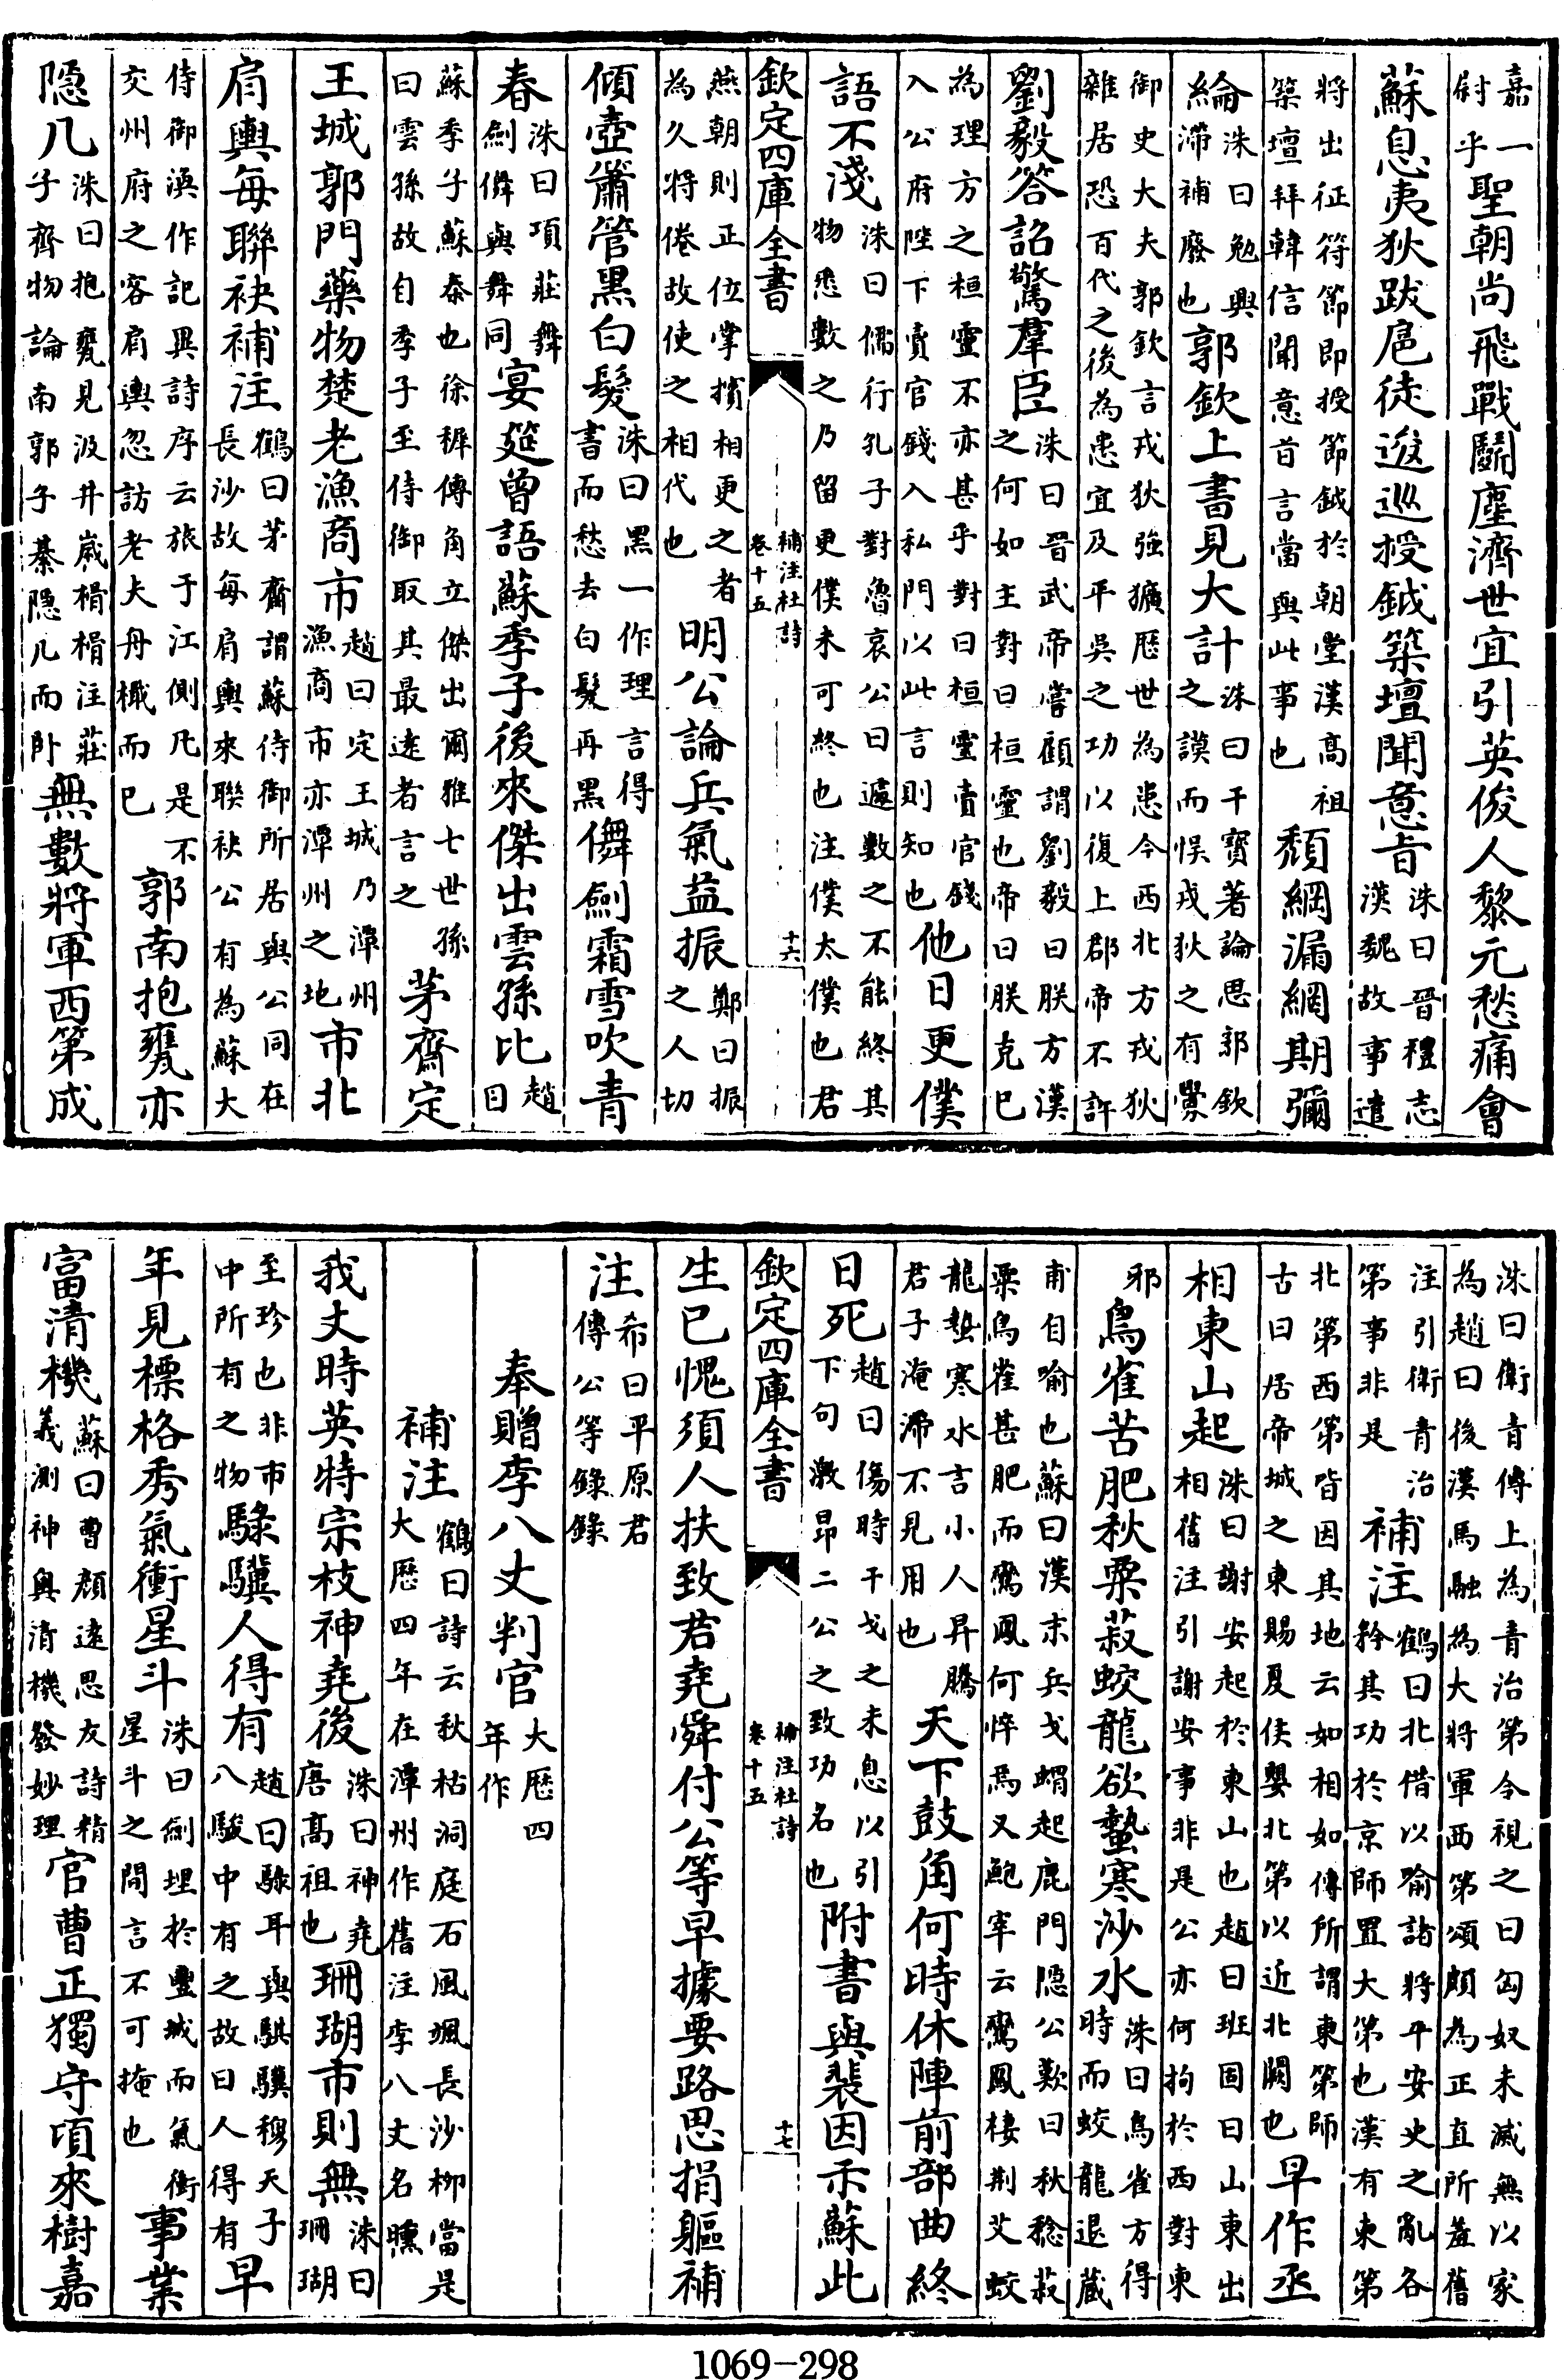 嘉一尉乎聖朝尚飛戰鬭塵濟世宜引英俊人黎元愁痛會
蘇息夷狄跋扈徒逡巡授鉞築壇聞意旨洙曰晉禮志漢魏故事遣
將出征符節即授節鉞於朝堂漢髙祖築壇拜韓信聞意旨言當與此事也頽綱漏網期彌
綸洙曰勉興滯補廢也郭欽上書見大計洙曰干寶著論思郭欽之謨而悮戎狄之有釁
御史大夫郭欽言戎狄強獷厯世為患今西北方戎狄雜居恐百代之後為患宜及平吳之功以復上郡帝不許
劉毅答詔驚羣臣洙曰晉武帝嘗顧謂劉毅曰朕方漢之何如主對曰桓靈也帝曰朕克已
為理方之桓靈不亦甚乎對曰桓靈賣官錢入公府陛下賣官錢入私門以此言則知也他日更僕
語不淺洙曰儒行孔子對魯哀公曰遽數之不能終其物悉數之乃留更僕未可終也注僕太僕也君
欽定四庫全書 補注杜詩 卷十五 十六
燕朝則正位掌擯相更之者為久將倦故使之相代也明公論兵氣益振鄭曰振之人切
傾壺簫管黑白髮洙曰黑一作理言得書而愁去白髮再黑儛劍霜雪吹青
春洙曰項莊舞劍儛與舞同宴筵曾語蘇季子後來傑出雲孫比趙曰
蘇季子蘇秦也徐穉傳角立傑出爾雅七世孫曰雲孫故自季子至侍御取其最逺者言之茅齋定
王城郭門藥物楚老漁商市趙曰定王城乃潭州漁商市亦潭州之地市北
肩輿每聯袂補注鶴曰茅齋謂蘇侍御所居與公同在長沙故每肩輿來聯袂公有為蘇大
侍御渙作記異詩序云旅于江側凡是不交州府之客肩輿忽訪老夫舟檝而已郭南抱甕亦
隱几洙曰抱甕見汲井嵗榾榾注莊子齊物論南郭子綦隱几而卧無數將軍西第成
洙曰衛青傳上為青治第令視之曰匈奴未滅無以家為趙曰後漢馬融為大將軍西第頌頗為正直所羞舊
注引衛青治第事非是補注鶴曰北借以喻諸將平安史之亂各矜其功於京師置大第也漢有東第
北第西第皆因其地云如相如傳所謂東第師古曰居帝城之東賜夏侯嬰北第以近北闕也早作丞
相東山起洙曰謝安起於東山也趙曰班固曰山東出相舊注引謝安事非是公亦何拘於西對東
邪鳥雀苦肥秋粟菽蛟龍欲蟄寒沙水洙曰鳥雀方得時而蛟龍退藏
甫自喻也蘇曰漢末兵戈蝟起鹿門隱公歎曰秋稔菽粟鳥雀甚肥而鸞鳳何悴焉又鮑宰云鸞鳳棲荆艾蛟
龍蟄寒水言小人昇騰君子淹滯不見用也天下鼓角何時休陣前部曲終
日死趙曰傷時干戈之未息以引下句激昂二公之致功名也附書與裴因示蘇此
欽定四庫全書 補注杜詩 卷十五 十七
生已愧須人扶致君堯舜付公等早據要路思捐軀補
注希曰平原君傳公等錄錄
奉贈李八丈判官大厯四年作
補注鶴曰詩云秋枯洞庭石風颯長沙柳當是大厯四年在潭州作舊注李八丈名曛
我丈時英特宗枝神堯後洙曰神堯唐髙祖也珊瑚市則無洙曰珊瑚
至珍也非市中所有之物騄驥人得有趙曰騄耳與騏驥穆天子八駿中有之故曰人得有早
年見標格秀氣衝星斗洙曰劍埋於豐城而氣衝星斗之間言不可掩也事業
富清機蘇曰曹顔逺思友詩精義測神奧清機發妙理官曹正獨守頃來樹嘉
1069-298